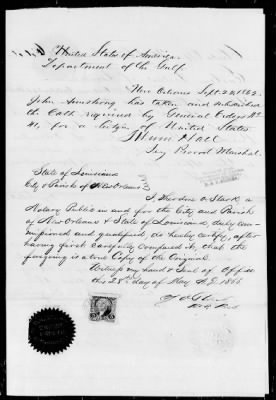 United States of America.
Department of the Gulf.
New Orleans Sept. 24 1862.
John Armstrong has taken and subscribed
the Oath required by General Orders No
41, for a citizen of United States
Hall
Provost Marshal.
State of Louisiana
City & Parish of New Orleans
I, Theodore O. Stark a
Notary Public in and for the City and Parish
of New Orleans & State of Louisiana, duly com-
missioned and qualified, do hereby certify, after
having first carefully compared it, that the
foregoing is a true Copy of the Original.
Witness my hand & Seal of Office
this 28th day of May A.D. 1866
Not. Pub.